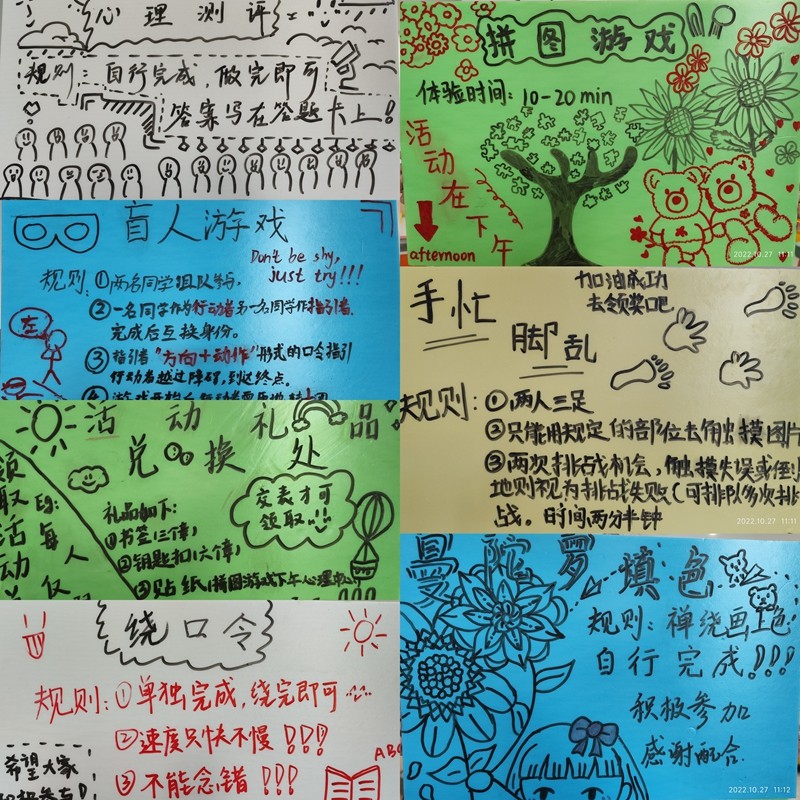 心理测评
规则：自行完成，做完即可
答案写在答题卡上！
拼图游戏
体验时间：10-20min
活动在下午
afternoon
2022.10.27 11:11
盲人游戏
Don't be shy,
just try!!!
规则：①两名同学组队参与，
②一名同学作为行动者另一名同学作指引者，
完成后互换身份。
③指引者"方向+动作"形式的口令指引
行动者越过障碍，到达终点。
左
加油成功
去领奖吧
手忙
脚乱
规则：①两人三足
②只能用规定的部位去触摸图片
③两次挑战机会，触摸失误或倒
地则视为挑战失败（可排队多次挑
战。时间两分半钟
2022.10.27 11:11
活动礼品
兑换处
礼品如下：
①书签（三个章）
②钥匙扣（六个章）
③贴纸（拼图游戏下午心理中心）
交表才可
领取
领取活动
每人仅
绕口令
规则：①单独完成，绕完即可
②速度只快不慢!!!
③不能念错!!!
希望大家
积极参与！
ABC
曼陀罗填色
规则：禅绕画上色
自行完成!!!
积极参加
感谢配合
2022.10.27 11:12